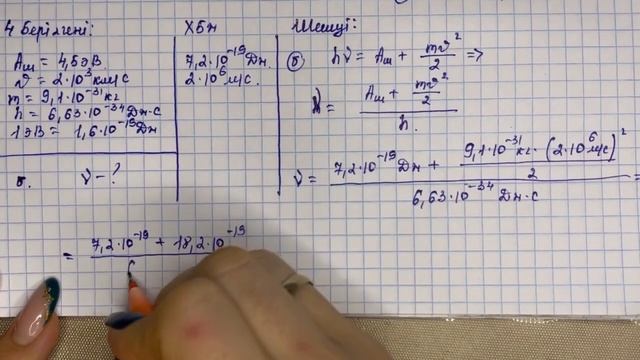 4 Берілгені:
Aш = 4,5 эВ
υ = 2·10³ км/с
m = 9,1·10⁻³¹ кг
h = 6,63·10⁻³⁴ Дж·с
1 эВ = 1,6·10⁻¹⁹ Дж
ν - ?
ХБЖ
7,2·10⁻¹⁹ Дж.
2·10⁶ м/с.
Шешуі:
hν = Aш + mυ²/2 =>
ν = (Aш + mυ²/2)/h.
ν = (7,2·10⁻¹⁹ Дж + 9,1·10⁻³¹ кг·(2·10⁶ м/с)²/2)/(6,63·10⁻³⁴ Дж·с) =
= 7,2·10⁻¹⁹ + 18,2·10⁻¹⁹